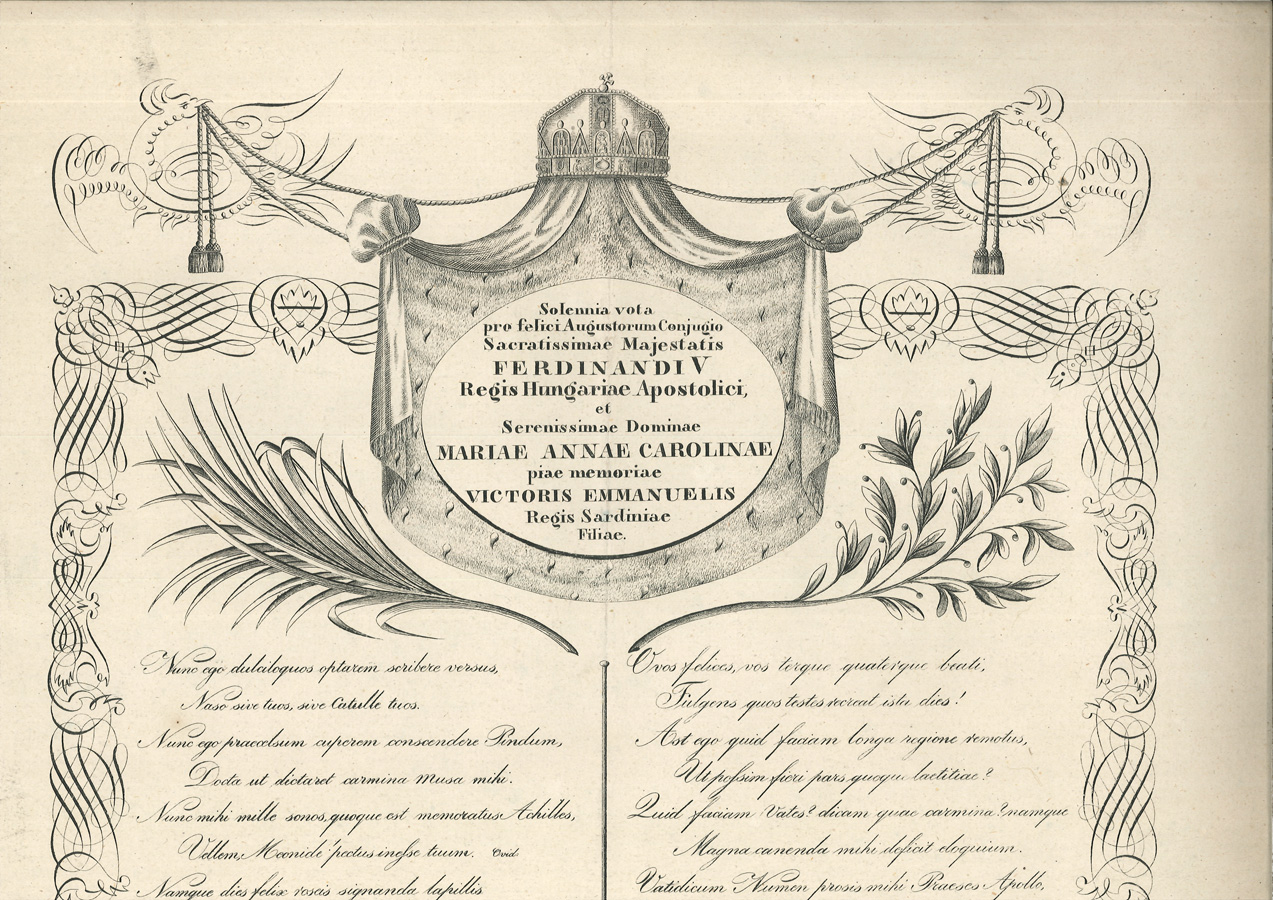 Solennia vota
pro felici Augustorum Conjugio
Sacratissimae Majestatis
FERDINANDI V
Regis Hungariae Apostolici,
et
Serenissimae Dominae
MARIAE ANNAE CAROLINAE
piae memoriae
VICTORIS EMMANUELIS
Regis Sardiniae
Filiae.
Nunc ego dulciloquos optarem scribere versus,
Naso sive tuos, sive Catulle tuos.
Nunc ego praecelsum cuperem conscendere Pindum,
Docta ut dictaret carmina Musa mihi.
Nunc mihi mille sonos, quoque est memoratus Achilles,
Vellem, Meonide pectus inesse tuum. Ovid.
Namque dies felix roseis signanda lapillis
O vos felices, vos terque quaterque beati,
Fulgens quos testes recreat ista dies!
Ast ego quid faciam longa regione remotus,
Ut possim fieri pars quoque laetitiae?
Quid faciam Vates? dicam quae carmina? namque
Magna canenda mihi deficit eloquium.
Vatidicum Numen prosis mihi Praeses Apollo,